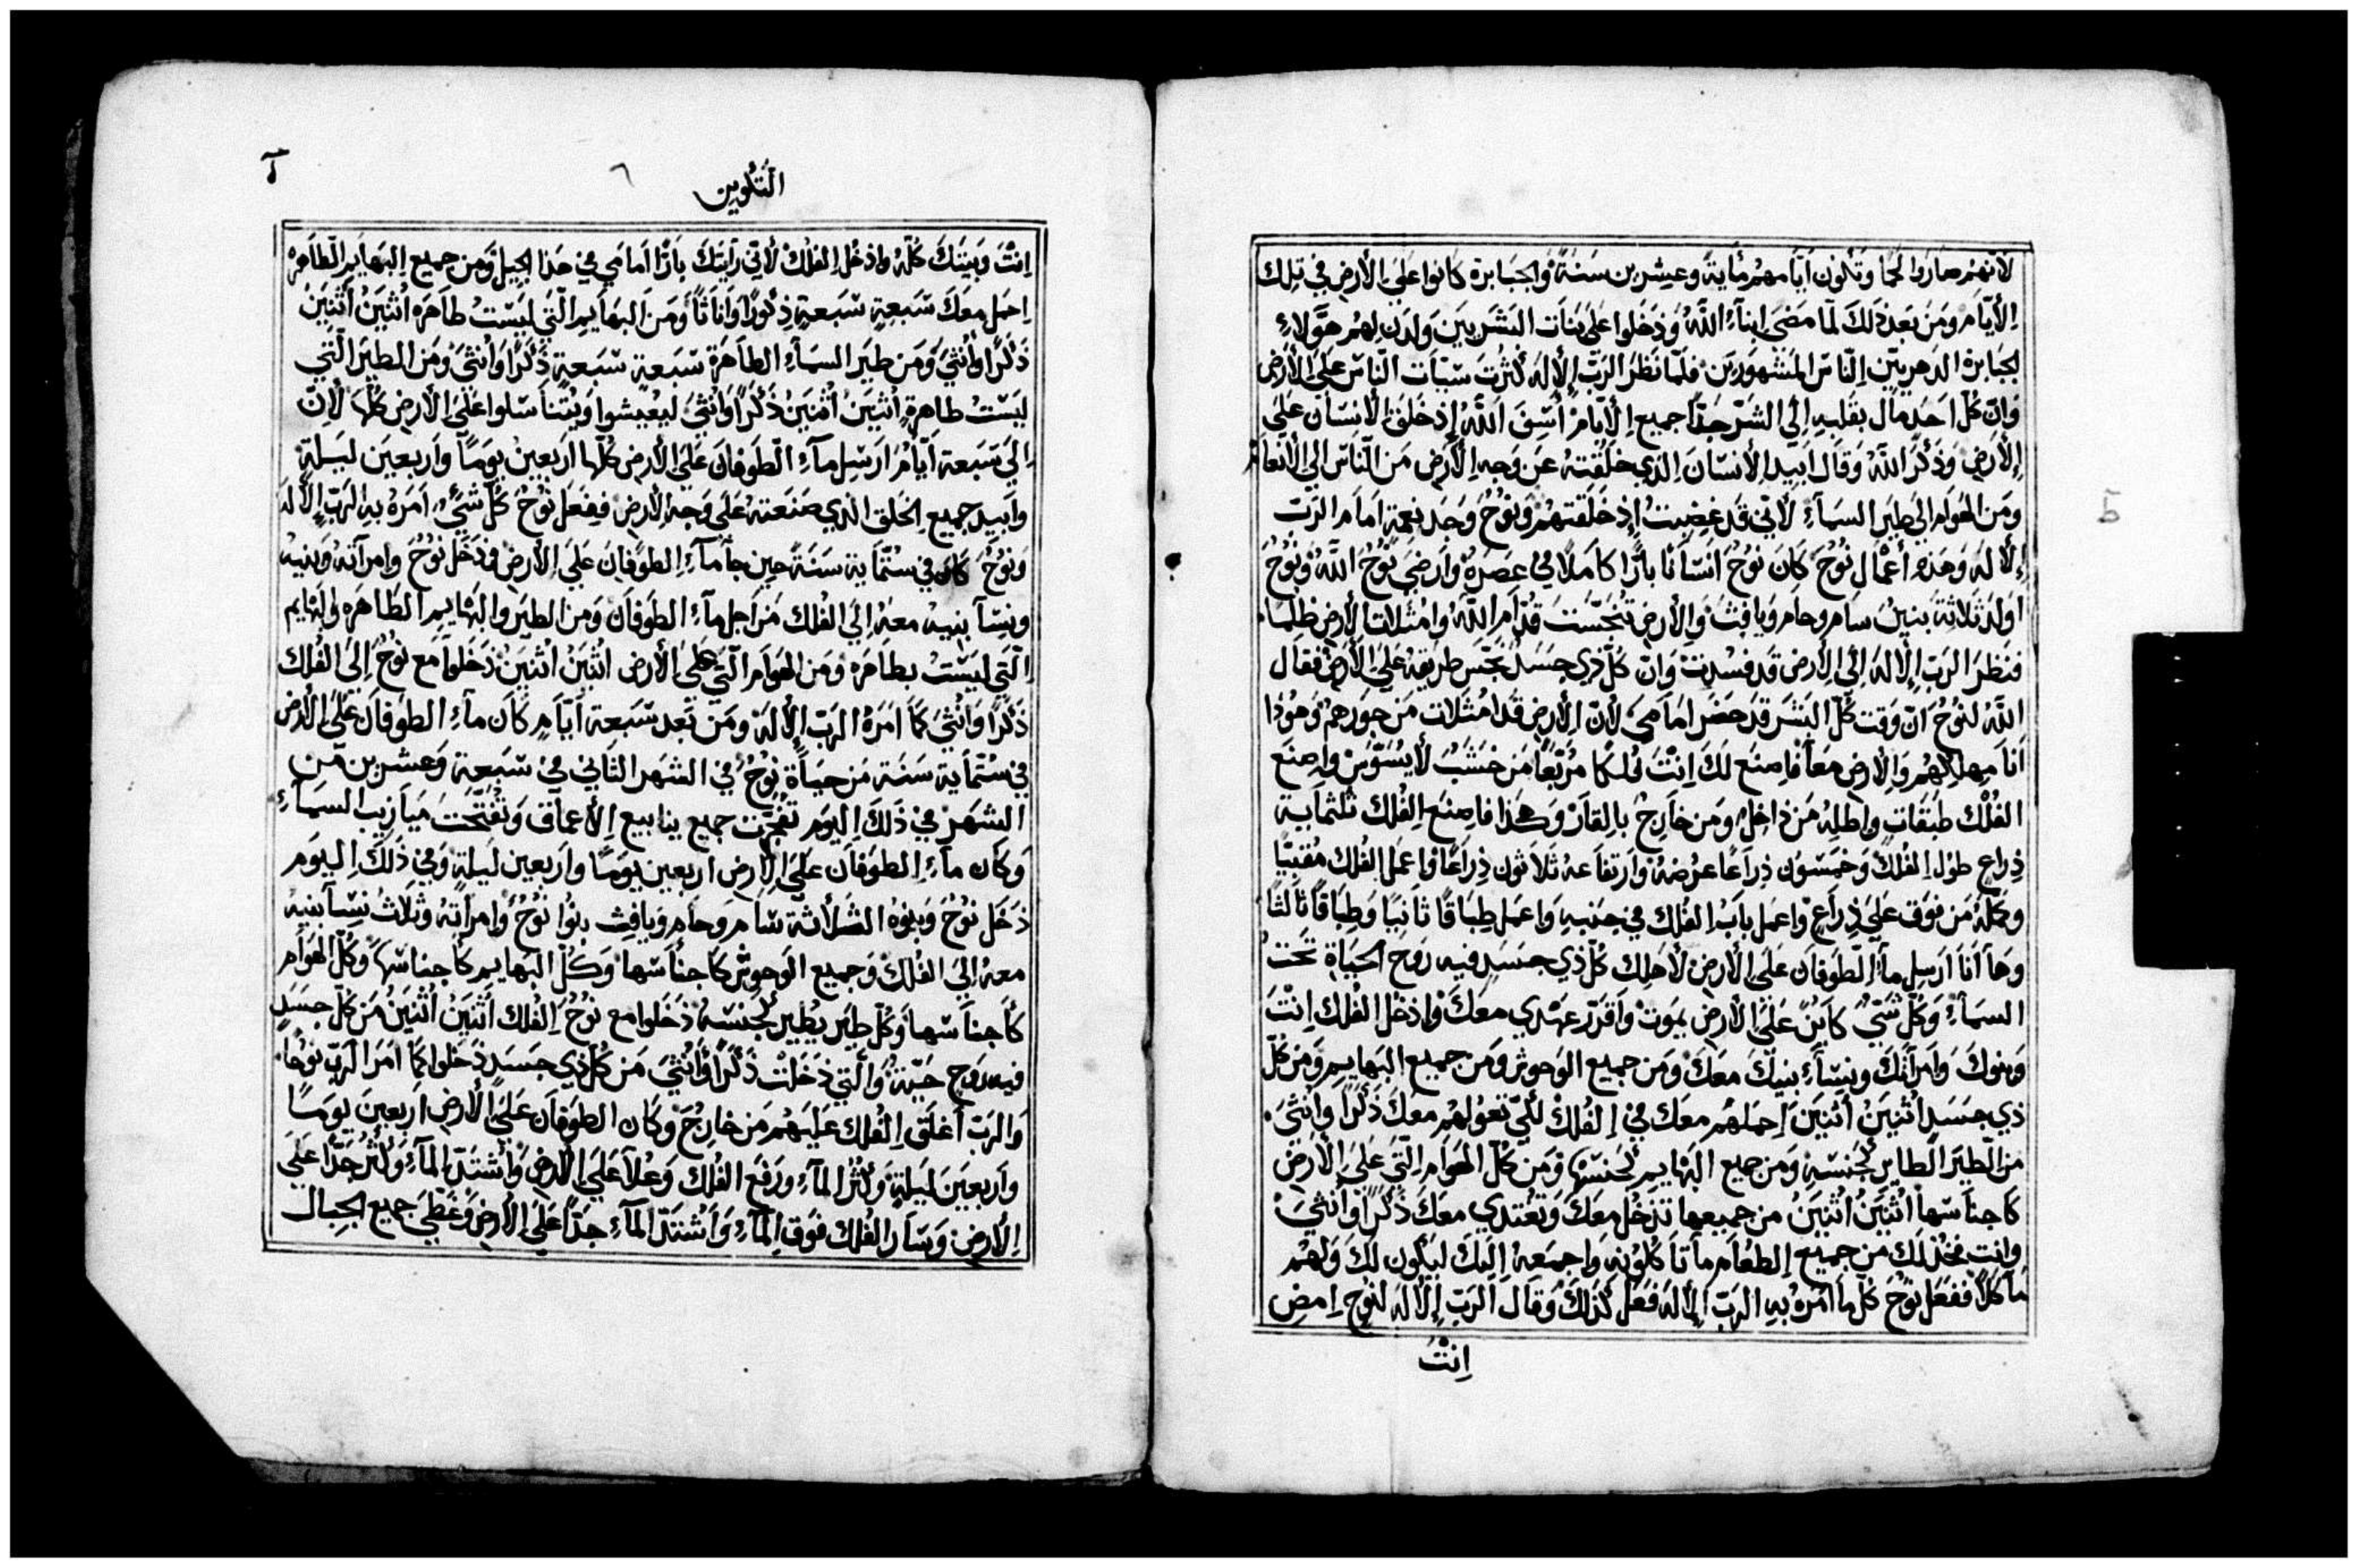 لانهم صاروا لحما وتكون ايامهم مايةً وعشرين سنةً والجبابرة كانوا علي الأرض في تلك
الأيام ومن بعد ذلك لما مضي ابنآء الله ودخلوا علي بنات البشريين ولدن لهم هوّلاءِ
لجبابرة الدهريّين الناس المشهورين فلمّا نظر الربّ الألهُ كثرت سيّات الناس علي الأرض
وانّ كلّ احد مال بقلبهِ الي الشرّ جدّاً جميع الأيّام أسِف الله إذ خلق الأنسان علي
الأرض وذكر الله وقال ابيد الأنسان الذي خلقته عن وجه الأرض من النّاس الي الأنعام
ومن الهوام الي طير السمآءِ لأنّي قد غضبت إذ خلقتهم ونوح وجد نعمةً امام الربّ
الأله وهذه أعمال نوح كان نوح انسانا بارّاً كاملاً في عصره وأرضي نوح الله ونوح
اولد ثلاثة بنين سام وحام ويافث والأرض تنجّست قدّام الله وامتلات الأرض ظلماً
فنظر الربّ الإله الي الأرض قد فسدت وانّ كلّ ذي جسد نجّس طريقه علي الأرض فقال
الله لنوح انّ وقت كلّ البشر قد حضر امامي لأنّ الأرض قد امتلات من جورهم وهوذا
أنا مهلكهم والأرض معاً فاصنع لك انت فلكا مربّعاً من خشب لا يسوّس واصنع
الفلك طبقات واطله من داخل ومن خارج بالقار وهكذا فاصنع الفلك ثلثماية
ذراع طول الفلك وخمسون ذراعاً عرضه وارتفاعه ثلاثون ذراعاً واعمل الفلك مقبّياً
وكمّله من فوق علي ذراع واعمل باب الفلك في جنبهِ واعمل طباقاً ثانياً وطباقاً ثالثاً
وها أنا ارسل مآء الطوفان علي الأرض لأهلك كلّ ذي جسد فيه روح الحياة تحت
السمآءِ وكلّ شيء كاين علي الأرض يموت واقرّر عهدي معك وادخل الفلك انت
وبنوك وامرأتك ونسآء بنيك معك ومن جميع الوحوش ومن جميع البهايم ومن كلّ
ذي جسد اثنين اثنين احملهم معك في الفلك لكي تعولهم معك ذكراً وانثي
من الطير الطاير لجنسهِ ومن جميع البهايم لجنسها ومن كلّ الهوام التي علي الأرض
كاجناسها اثنين اثنين من جميعها تدخل معك وتغتدي معك ذكراً وانثي
وانت فخذ لك من جميع الطعام ما تاكلونه واجمعه اليك ليكون لك ولهم
مآكلاً ففعل نوح كلّ ما أمره بهِ الربّ الأله فعل كذلك وقال الربّ الأله لنوح امض
انت
التكوين
٦
انت وبيتك كلّه وادخل الفلك لأنّي رأيتك بارّا امامي في هذا الجيل ومن جميع البهايم الطاهره
احمل معك سبعةٍ سبعةٍ ذكوراً واناثاً ومن البهايم التي ليست طاهره اثنين اثنين
ذكراً وأنثي ومن طير السمآءِ الطاهرة سبعةٍ سبعةٍ ذكراً وانثي ومن الطير التي
ليست طاهرةٍ اثنين اثنين ذكراً وانثي ليعيشوا ويتناسلوا علي الأرض كلّها لأنّ
الي سبعة أيّام ارسل مآءِ الطوفان علي الأرض كلّها اربعين يوماً واربعين ليلةٍ
وابيد جميع الخلق الذي صنعته علي وجه الأرض ففعل نوح كلّ شيءٍ امره به الربّ الأله
ونوح كان في ستّماية سنة حين جا مآءِ الطوفان علي الأرض فدخل نوح وامرآته وبنيه
ونسآ بنيه معه الي الفلك من اجل مآءِ الطوفان ومن الطير والبهايم الطاهره والبهايم
التي ليست بطاهره ومن الهوام التي علي الأرض اثنين اثنين دخلوا مع نوح الي الفلك
ذكراً وانثي كما امره الربّ الأله ومن بعد سبعة أيّامٍ كان مآءِ الطوفان علي الأرض
في ستّماية سنة من حياة نوح في الشهر الثاني في سبعة وعشرين من
الشهر في ذلك اليوم تفجّرت جميع ينابيع الأعماق وتفتّحت ميازيب السمآءِ
وكان مآءِ الطوفان علي الأرض اربعين يوماً واربعين ليلةٍ وفي ذلك اليوم
دخل نوح وبنوه الثلاثة سام وحام ويافث بنوا نوح وامرأته وثلاث نسآ بنيه
معه الي الفلك وجميع الوحوش كاجناسها وكلّ البهايم كاجناسها وكلّ الهوام
كأجناسها وكلّ طير يطير لجنسه دخلوا مع نوح الفلك اثنين اثنين من كلّ جسدٍ
فيه روح حيّة والتي دخلت ذكراً وأنثي من كلّ ذي جسد دخلوا كما امر الربّ نوحاً
والربّ أغلق الفلك عليهم من خارج وكان الطوفان علي الأرض اربعين يوماً
واربعين ليلةٍ وكثر المآءِ ورفع الفلك وعلا علي الأرض واشتدّ المآءِ وكثر جدّاً علي
الأرض وسار الفلك فوق المآءِ واشتدّ المآءِ جدّاً علي الأرض وغطّي جميع الجبال